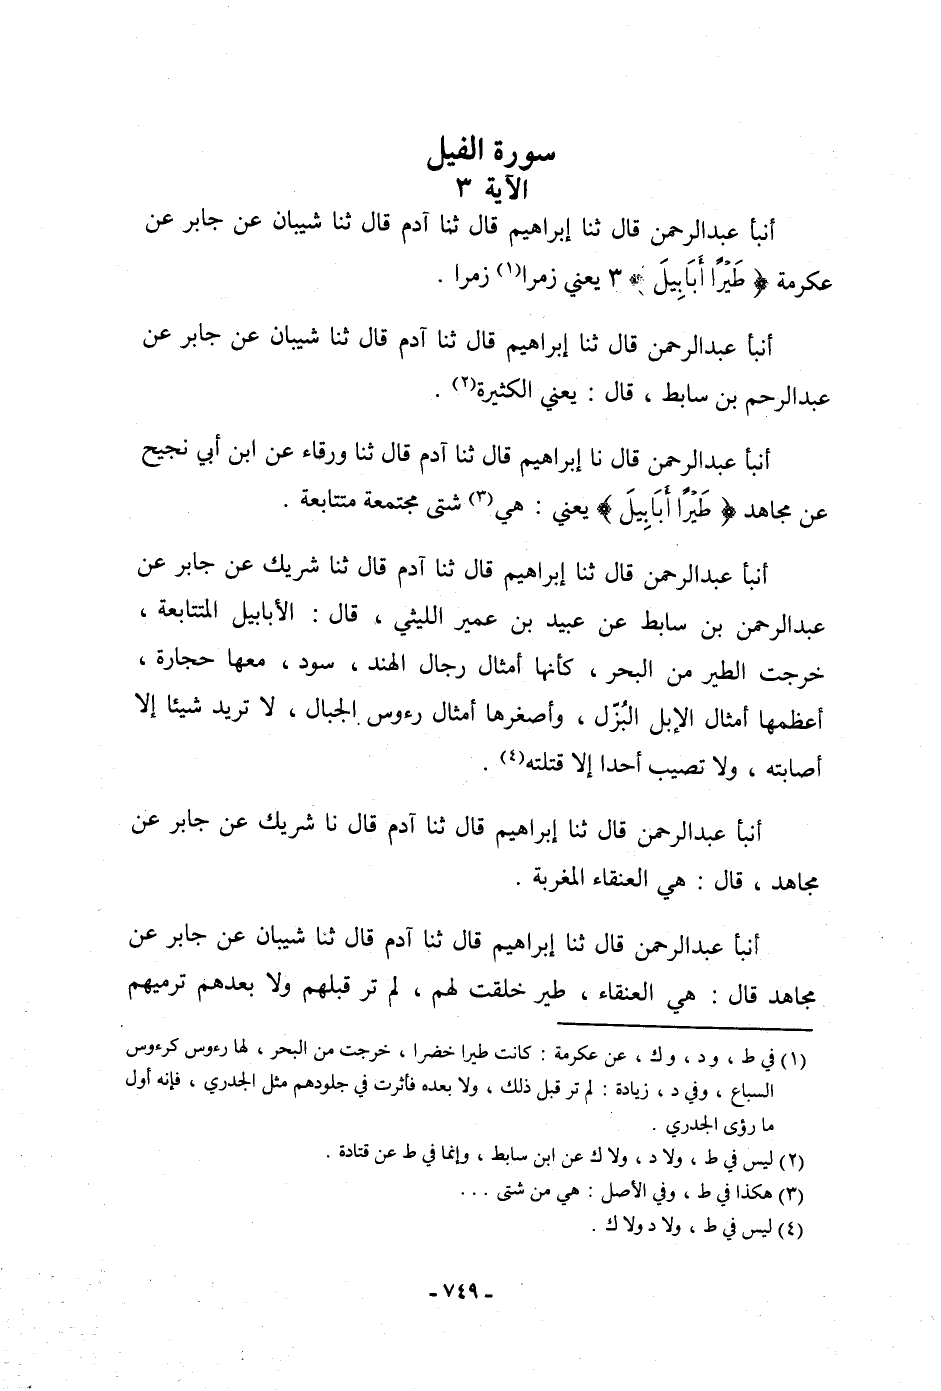 سورة الفيل
الآية ٣
أنبأ عبدالرحمن قال ثنا إبراهيم قال ثنا آدم قال ثنا شيبان عن جابر عن
عكرمة ﴿ طَيْرًا أَبَابِيلَ ﴾ ٣ يعني زمرا(١) زمرا .
أنبأ عبدالرحمن قال ثنا إبراهيم قال ثنا آدم قال ثنا شيبان عن جابر عن
عبدالرحم بن سابط ، قال : يعني الكثيرة(٢) .
أنبأ عبدالرحمن قال نا إبراهيم قال ثنا آدم قال ثنا ورقاء عن ابن أبي نجيح
عن مجاهد ﴿ طَيْرًا أَبَابِيلَ ﴾ يعني : هي(٣) شتى مجتمعة متتابعة .
أنبأ عبدالرحمن قال ثنا إبراهيم قال ثنا آدم قال ثنا شريك عن جابر عن
عبدالرحمن بن سابط عن عبيد بن عمير الليثي ، قال : الأبابيل المتتابعة ،
خرجت الطير من البحر ، كأنها أمثال رجال الهند ، سود ، معها حجارة ،
أعظمها أمثال الإبل البُزّل ، وأصغرها أمثال رءوس الجبال ، لا تريد شيئا إلا
أصابته ، ولا تصيب أحدا إلا قتلته(٤) .
أنبأ عبدالرحمن قال ثنا إبراهيم قال ثنا آدم قال نا شريك عن جابر عن
مجاهد ، قال : هي العنقاء المغربة .
أنبأ عبدالرحمن قال ثنا إبراهيم قال ثنا آدم قال ثنا شيبان عن جابر عن
مجاهد قال : هي العنقاء ، طير خلقت لهم ، لم تر قبلهم ولا بعدهم ترميهم
(١) في ط ، ود ، وك ، عن عكرمة : كانت طيرا خضرا ، خرجت من البحر ، لها رءوس كرءوس
السباع ، وفي د ، زيادة : لم تر قبل ذلك ، ولا بعده فأثرت في جلودهم مثل الجدري ، فإنه أول
ما رؤى الجدري .
(٢) ليس في ط ، ولا د ، ولا ك عن ابن سابط ، وإنما في ط عن قتادة .
(٣) هكذا في ط ، وفي الأصل : هي من شتى ...
(٤) ليس في ط ، ولا د ولا ك .
- ٧٤٩ -